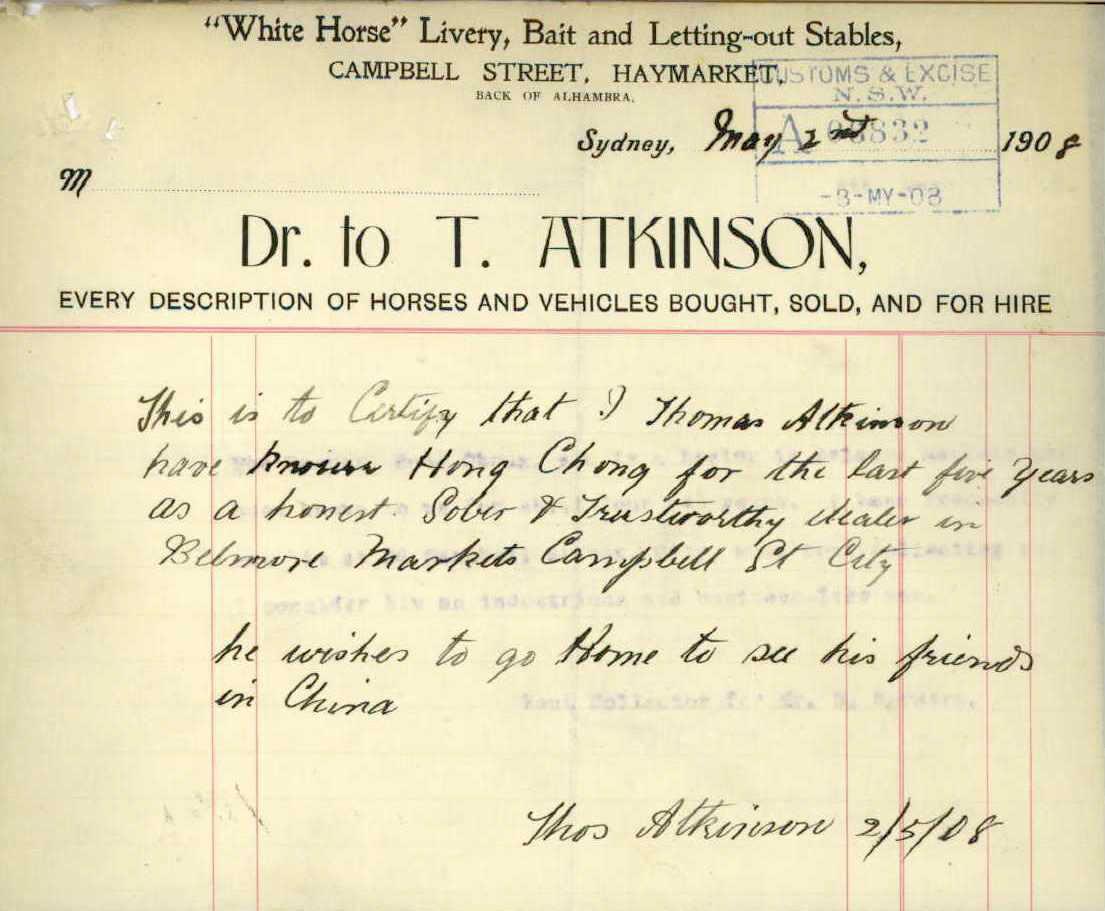 "White Horse" Livery, Bait and Letting-out Stables,
CAMPBELL STREET, HAYMARKET,
BACK OF ALHAMBRA.
CUSTOMS & EXCISE
N.S.W.
Sydney, May 2nd 1908
A 08832
M
-3-MY-08
Dr. to T. ATKINSON,
EVERY DESCRIPTION OF HORSES AND VEHICLES BOUGHT, SOLD, AND FOR HIRE
This is to Certify that I Thomas Atkinson
have known Hong Chong for the last five years
as a honest. Sober & Trustworthy dealer in
Belmore Markets Campbell St City
he wishes to go Home to see his friends
in China
Thos Atkinson 2/5/08